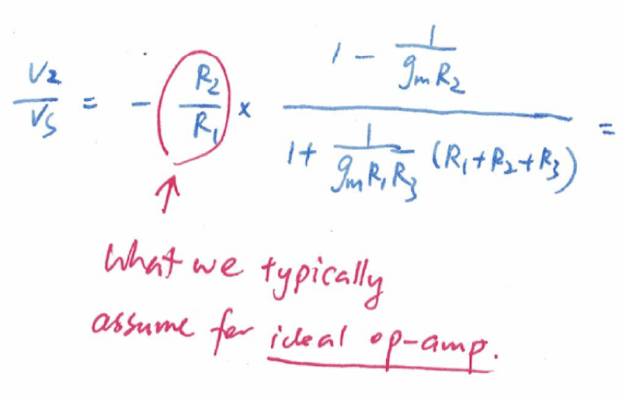 V2/Vs = - R2/R1 × (1 - 1/(gmR2)) / (1 + 1/(gmR1R3) (R1+R2+R3)) =
What we typically
assume for ideal op-amp.